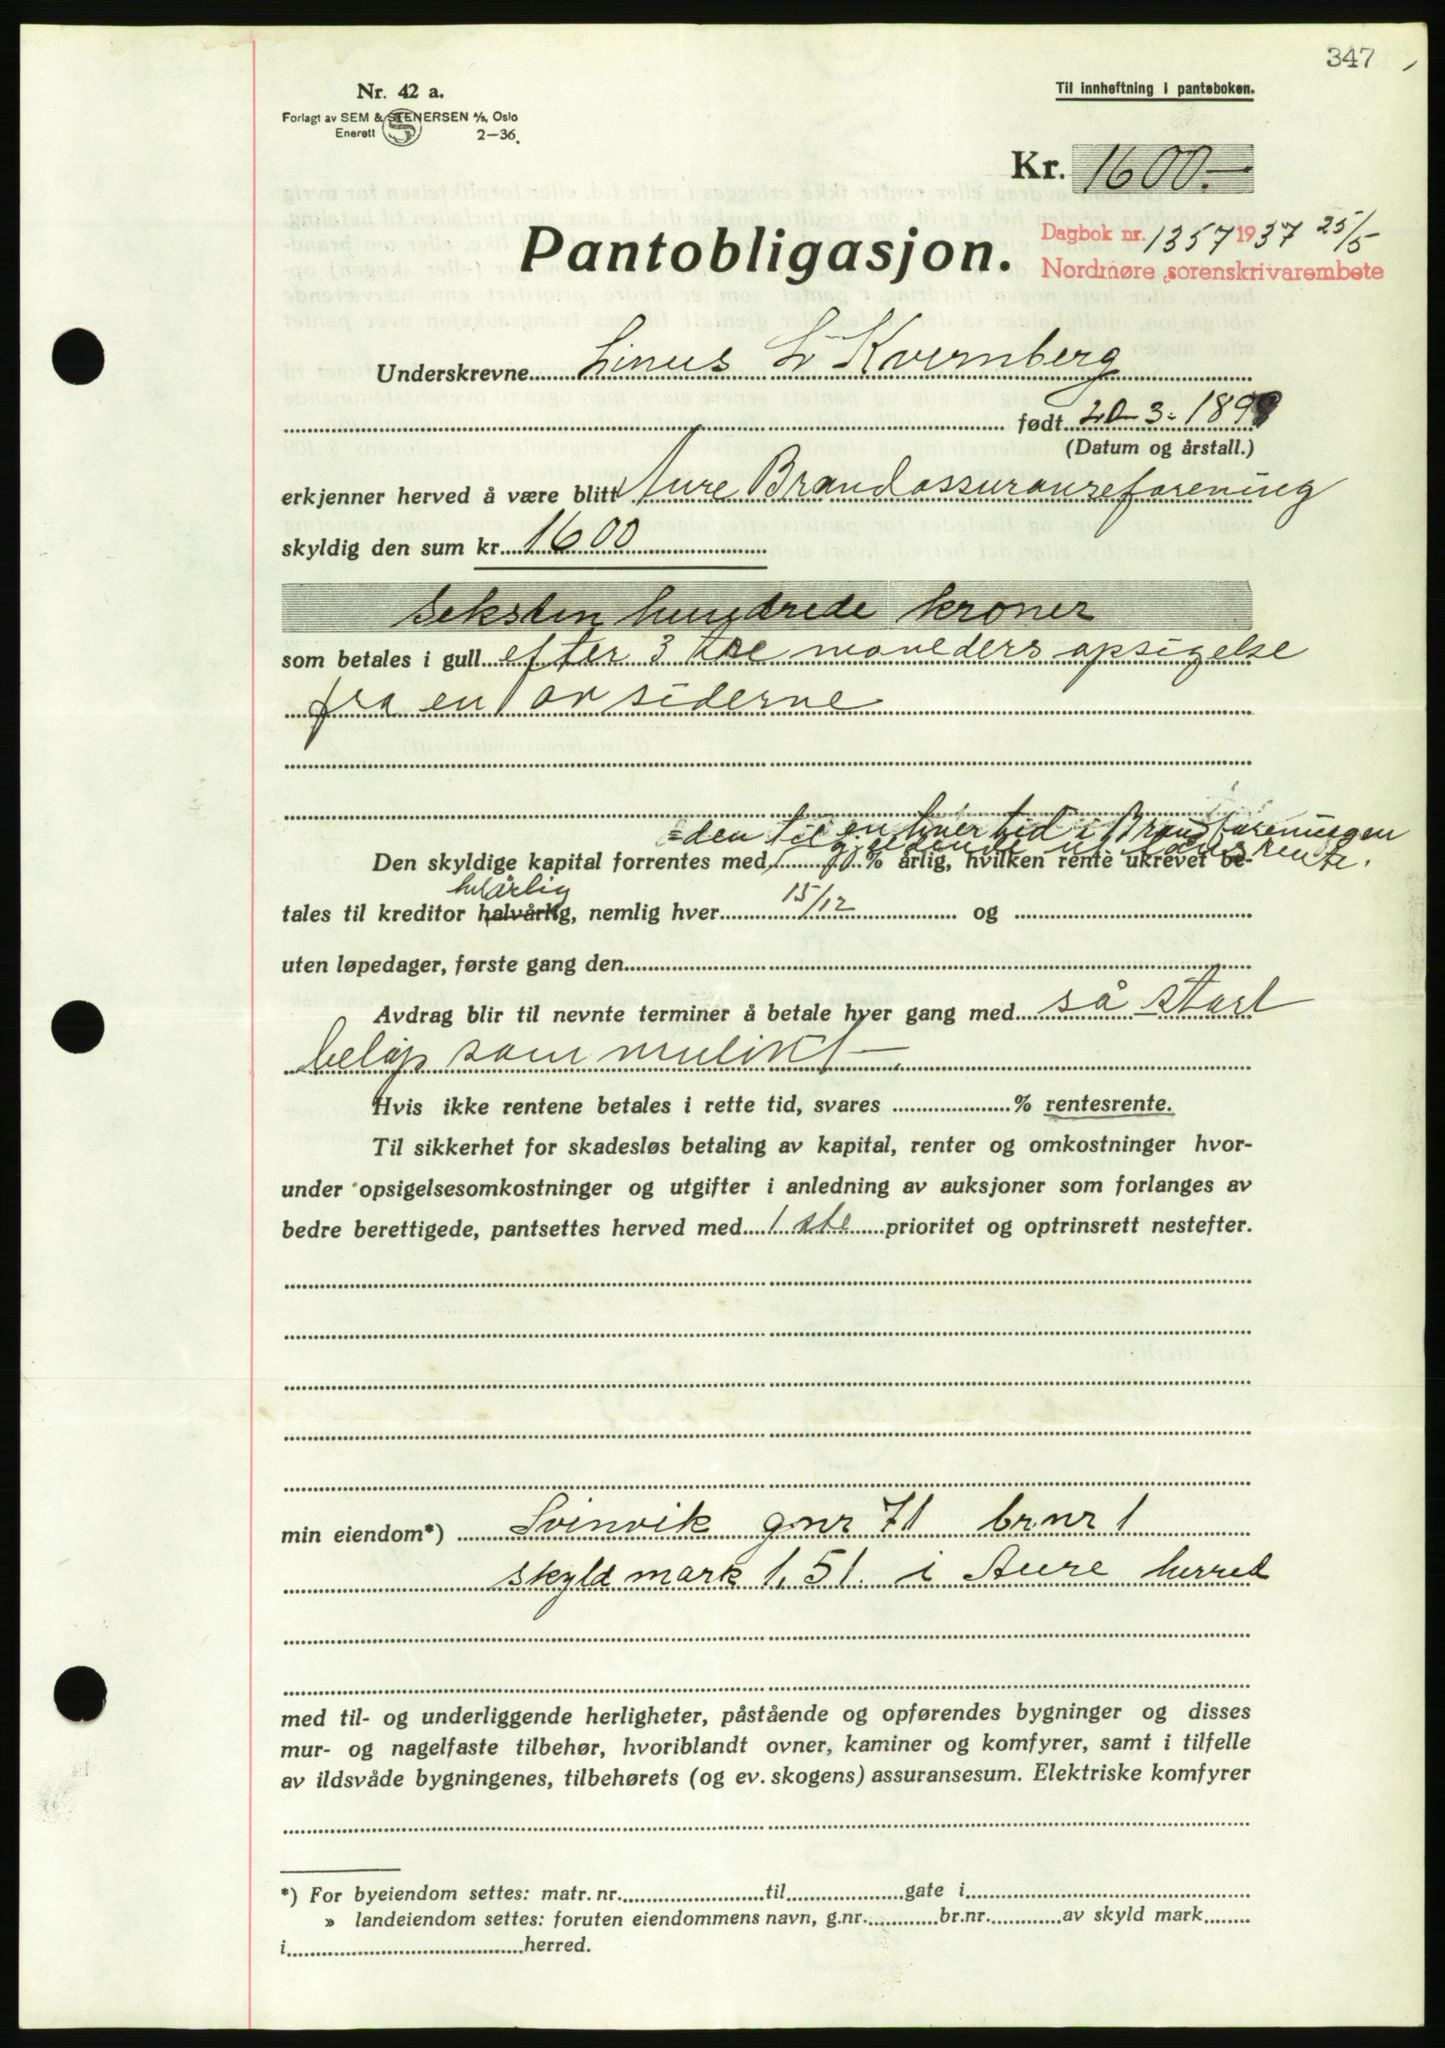 347
Nr. 42 a.
Til innheftning i panteboken.
Forlagt av SEM & STENERSEN A/S, Oslo
Enerett 2—36.
Kr. 1600.-
Dagbok nr. 1357 1937 25/5
Nordmøre sorenskrivarembete
Pantobligasjon.
Underskrevne Linus L Kvernberg
født 20-3-189
(Datum og årstall.)
erkjenner herved å være blitt Aure Brandassuranseforening
skyldig den sum kr. 1600
seksten hundrede kroner
som betales i gull efter 3 tre måneders opsigelse
fra en av siderne
=den til enhver tid i Brandforeningen
gjeldende utlånsrente.
Den skyldige kapital forrentes med % årlig, hvilken rente ukrevet be-
helårlig
tales til kreditor halvårlig, nemlig hver 15/12 og
uten løpedager, første gang den
Avdrag blir til nevnte terminer å betale hver gang med så stort
beløp som mulikt —
Hvis ikke rentene betales i rette tid, svares % rentesrente.
Til sikkerhet for skadesløs betaling av kapital, renter og omkostninger hvor-
under opsigelsesomkostninger og utgifter i anledning av auksjoner som forlanges av
bedre berettigede, pantsettes herved med 1 ste prioritet og optrinsrett nestefter.
min eiendom*) Svinvik gnr 71 br.nr 1
skyld mark 1,51. i Aure herred
med til- og underliggende herligheter, påstående og opførendes bygninger og disses
mur- og nagelfaste tilbehør, hvoriblandt ovner, kaminer og komfyrer, samt i tilfelle
av ildsvåde bygningenes, tilbehørets (og ev. skogens) assuransesum. Elektriske komfyrer
*) For byeiendom settes: matr. nr. til gate i
» landeiendom settes: foruten eiendommens navn, g.nr. br.nr. av skyld mark
i herred.